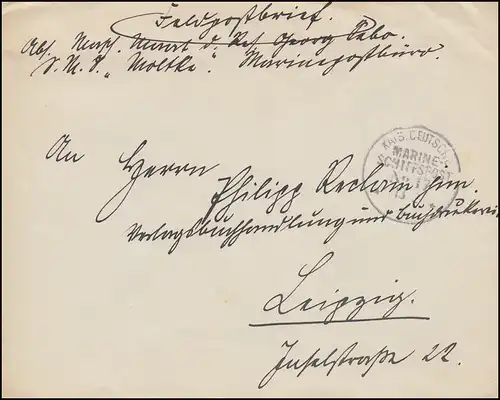 Feldpostbrief.
Abs. Masch. Maat d. Res. Georg Tebo.
S.M.S. „Moltke". Marinepostbüro.
An Herrn
Philipp Reclam jun.
Verlagsbuchhandlung und Buchdrukerei
Leipzig.
Inselstraße 22.
KAIS. DEUTSCHE
MARINE-
SCHIFFSPOST